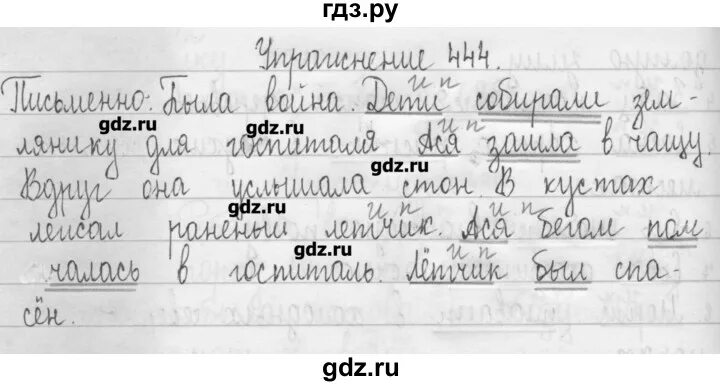 гдз.ру
Упражнение 444.
и п
Письменно: Была война. Дети собирали зем-
gdz.ru
gdz.ru
и п
лянику для госпиталя Ася зашла в чащу.
gdz.ru
Вдруг она услышала стон. В кустах
gdz.ru
и п и п
лежал раненый летчик. Ася бегом пом
gdz.ru
и п
чалась в госпиталь. Лётчик был спа-
gdz.ru
сён.
gdz.ru